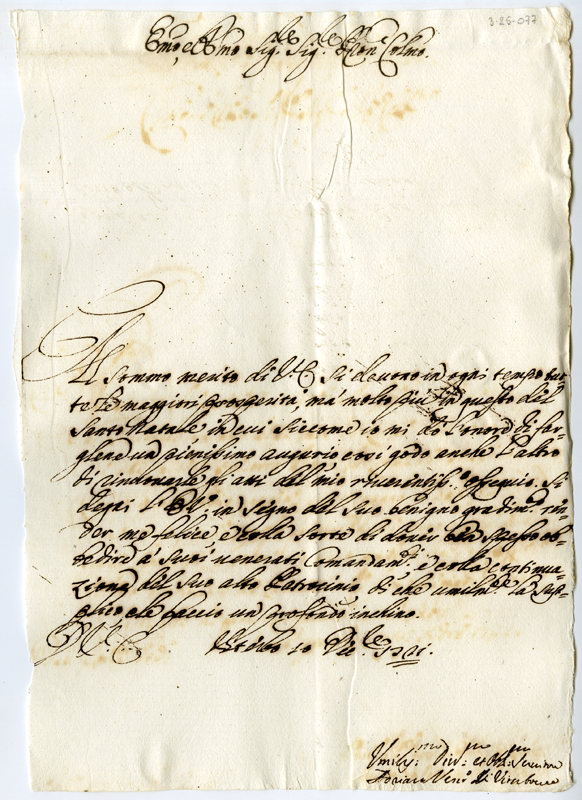 3-25-077
Emo, e Rmo Sig.re Sig.re Pron Colmo.
Al sommo merito di V. E. si devono in ogni tempo tut-
te le maggiori prosperità, mà molto più in questo del
Santo Natale in cui siccome io mi dò l'onore di far-
glene un pienissimo augurio così godo anche l'altro
di rinovarle gli atti del mio riverentiss.o ossequio. Si
degni l'E. V. in segno del suo benigno gradim.to ren-
der me felice e colla sorte di dover spesso ob-
bedire à suoi venerati Comandam.ti e colla continua-
zione del suo alto Patrocinio di che umilm.te la sup-
plico e le faccio un profondo inchino.
D. V. E. Viterbo 20 Dic.re 1721.
Umiliss.mo Div.mo et Obb.mo Servitore
di Viterbo